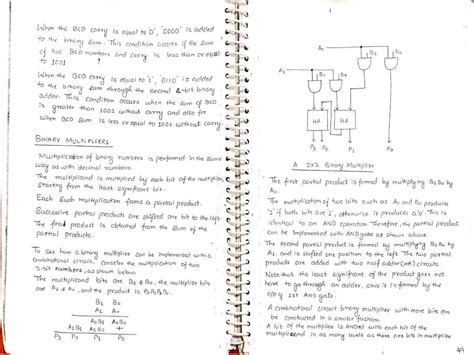 When the BCD carry is equal to '0', '0000' is added
to the binary sum. This condition occurs if the sum
of two BCD numbers and carry is less than or equal
to 1001
When the BCD carry is equal to '1', '0110' is added
to the binary sum through the second 4-bit binary
adder. This Condition occurs when the sum of BCD
is greater than 1001 without carry and also for
when BCD sum is less or equal to 1001 without carry.
BINARY MULTIPLIERS
Multiplication of binary numbers is performed in the same
way as with decimal numbers.
The multiplicand is multiplied by each bit of the multiplier,
starting from the least significant bit.
Each such multiplication forms a partial product.
Successive partial products are shifted one bit to the left.
The final product is obtained from the sum of the
partial products.
To see how a binary multiplier can be implemented with a
combinational circuit, consider the multiplication of two
2-bit numbers, as shown below.
The multiplicand bits are B1 & B0, the multiplier bits
are A1 & A0, and the product is P3P2P1P0.
B1 B0
A1 A0
A0B1 A0B0
A1B1 A1B0
P3 P2 P1 P0
A0
B1 B0
A1
B1 B0
HA HA
P3 P2 P1 P0
A 2x2 Binary Multiplier
The first partial product is formed by multiplying B1B0 by
A0.
The multiplication of two bits such as A0 and B0 produces
'1' if both bits are '1', otherwise it produces a '0'. This is
identical to an AND operation. Therefore, the partial product
can be implemented with AND gates as shown above.
The second partial product is formed by multiplying B1B0 by
A1. and is shifted one position to the left. The two partial
products are added with two half adder (HA) circuits
Note that the least significant of the product does not
have to go through an adder, since it is formed by the
o/p of 1st AND gate.
A combinational circuit binary multiplier with more bits can
be constructed in a similar fashion.
A bit of the multiplier is ANDed with each bit of the
multiplicand in as many levels as there are bits in multiplier
49